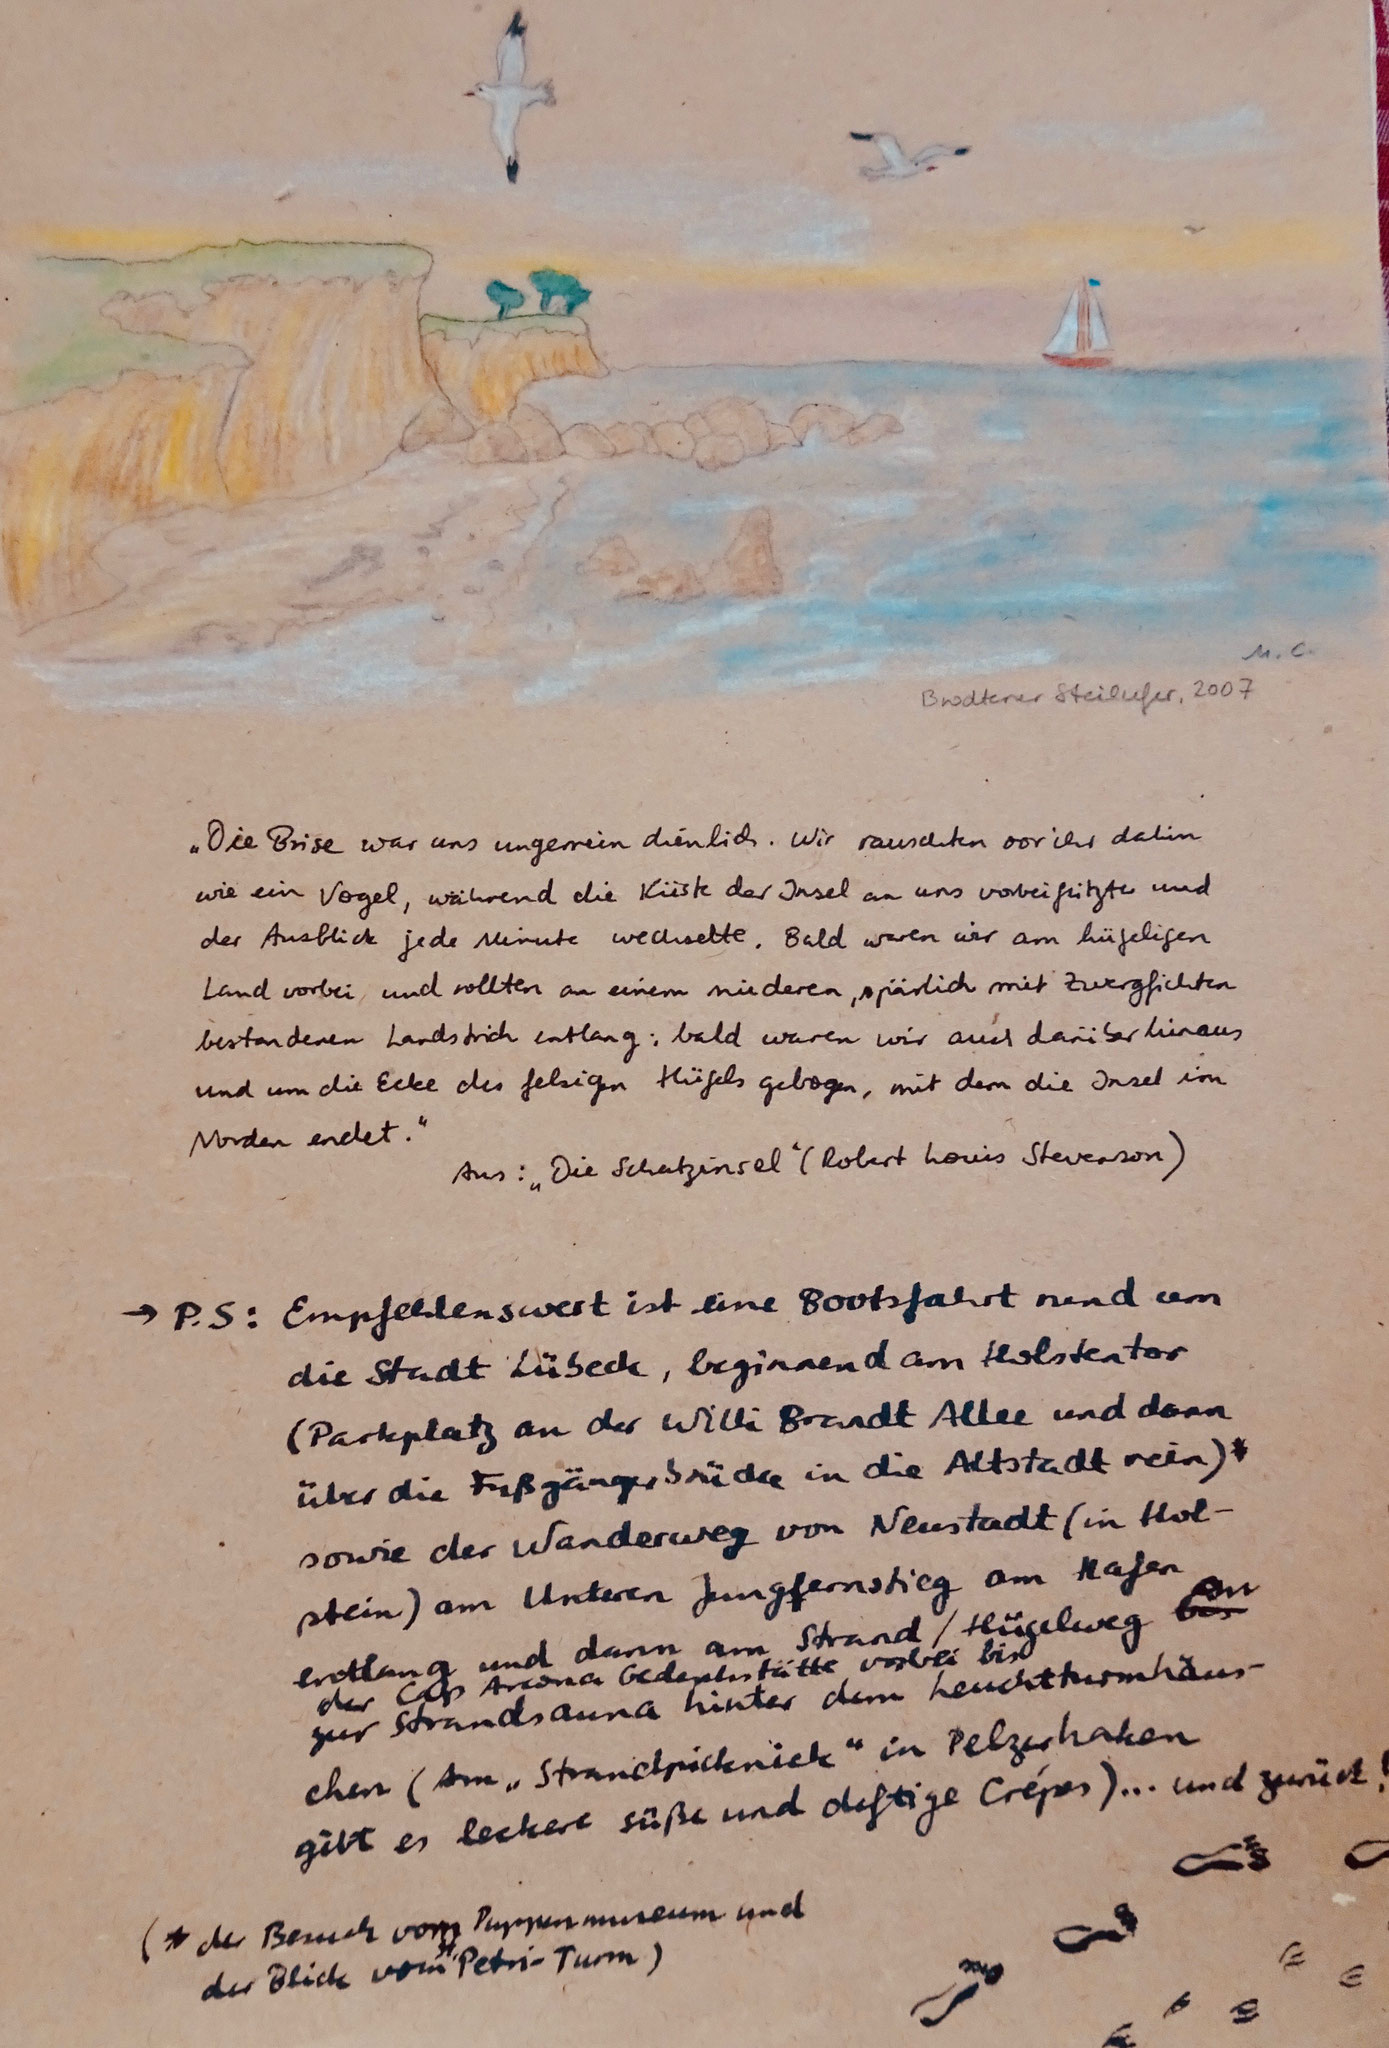 M. C.
Brodtener Steilufer, 2007
„Die Brise war uns ungemein dienlich. Wir rauschten vor ihr dahin
wie ein Vogel, während die Küste der Insel an uns vorbeiflitzte und
der Ausblick jede Minute wechselte. Bald waren wir am hügeligen
Land vorbei und rollten an einem niederen, spärlich mit Zwergfichten
bestandenen Landstrich entlang; bald waren wir auch darüber hinaus
und um die Ecke des felsigen Hügels gebogen, mit dem die Insel im
Norden endet.“
Aus: „Die Schatzinsel“ (Robert Louis Stevenson)
→ P.S: Empfehlenswert ist eine Bootsfahrt rund um
die Stadt Lübeck, beginnend am Holstentor
(Parkplatz an der Willi Brandt Allee und dann
über die Fußgängerbrücke in die Altstadt rein)*
sowie der Wanderweg von Neustadt (in Hol-
stein) am Unteren Jungfernstieg am Hafen
entlang und dann am Strand/Hügelweg an
der Cap Arcona Gedenkstätte vorbei bis
zur Strandsauna hinter dem Leuchtturmhäus-
chen (Am „Strandpicknick“ in Pelzerhaken
gibt es leckere süße und deftige Crépes)... und zurück!
(* der Besuch vom Puppenmuseum und
der Blick vom St. Petri-Turm)